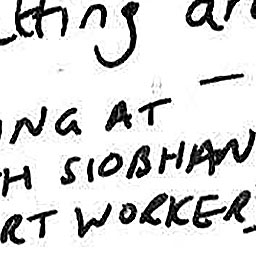 tting an
ING AT —
H SIOBHAN
RT WORKER